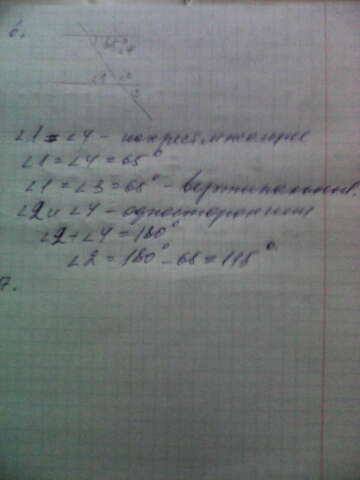 6.
∠1 = ∠4 - накрест лежащие
∠1 = ∠4 = 65°
∠1 = ∠3 = 65° - вертикальные.
∠2 и ∠4 - односторонние
∠2 + ∠4 = 180°
∠2 = 180° - 65 = 115°
7.